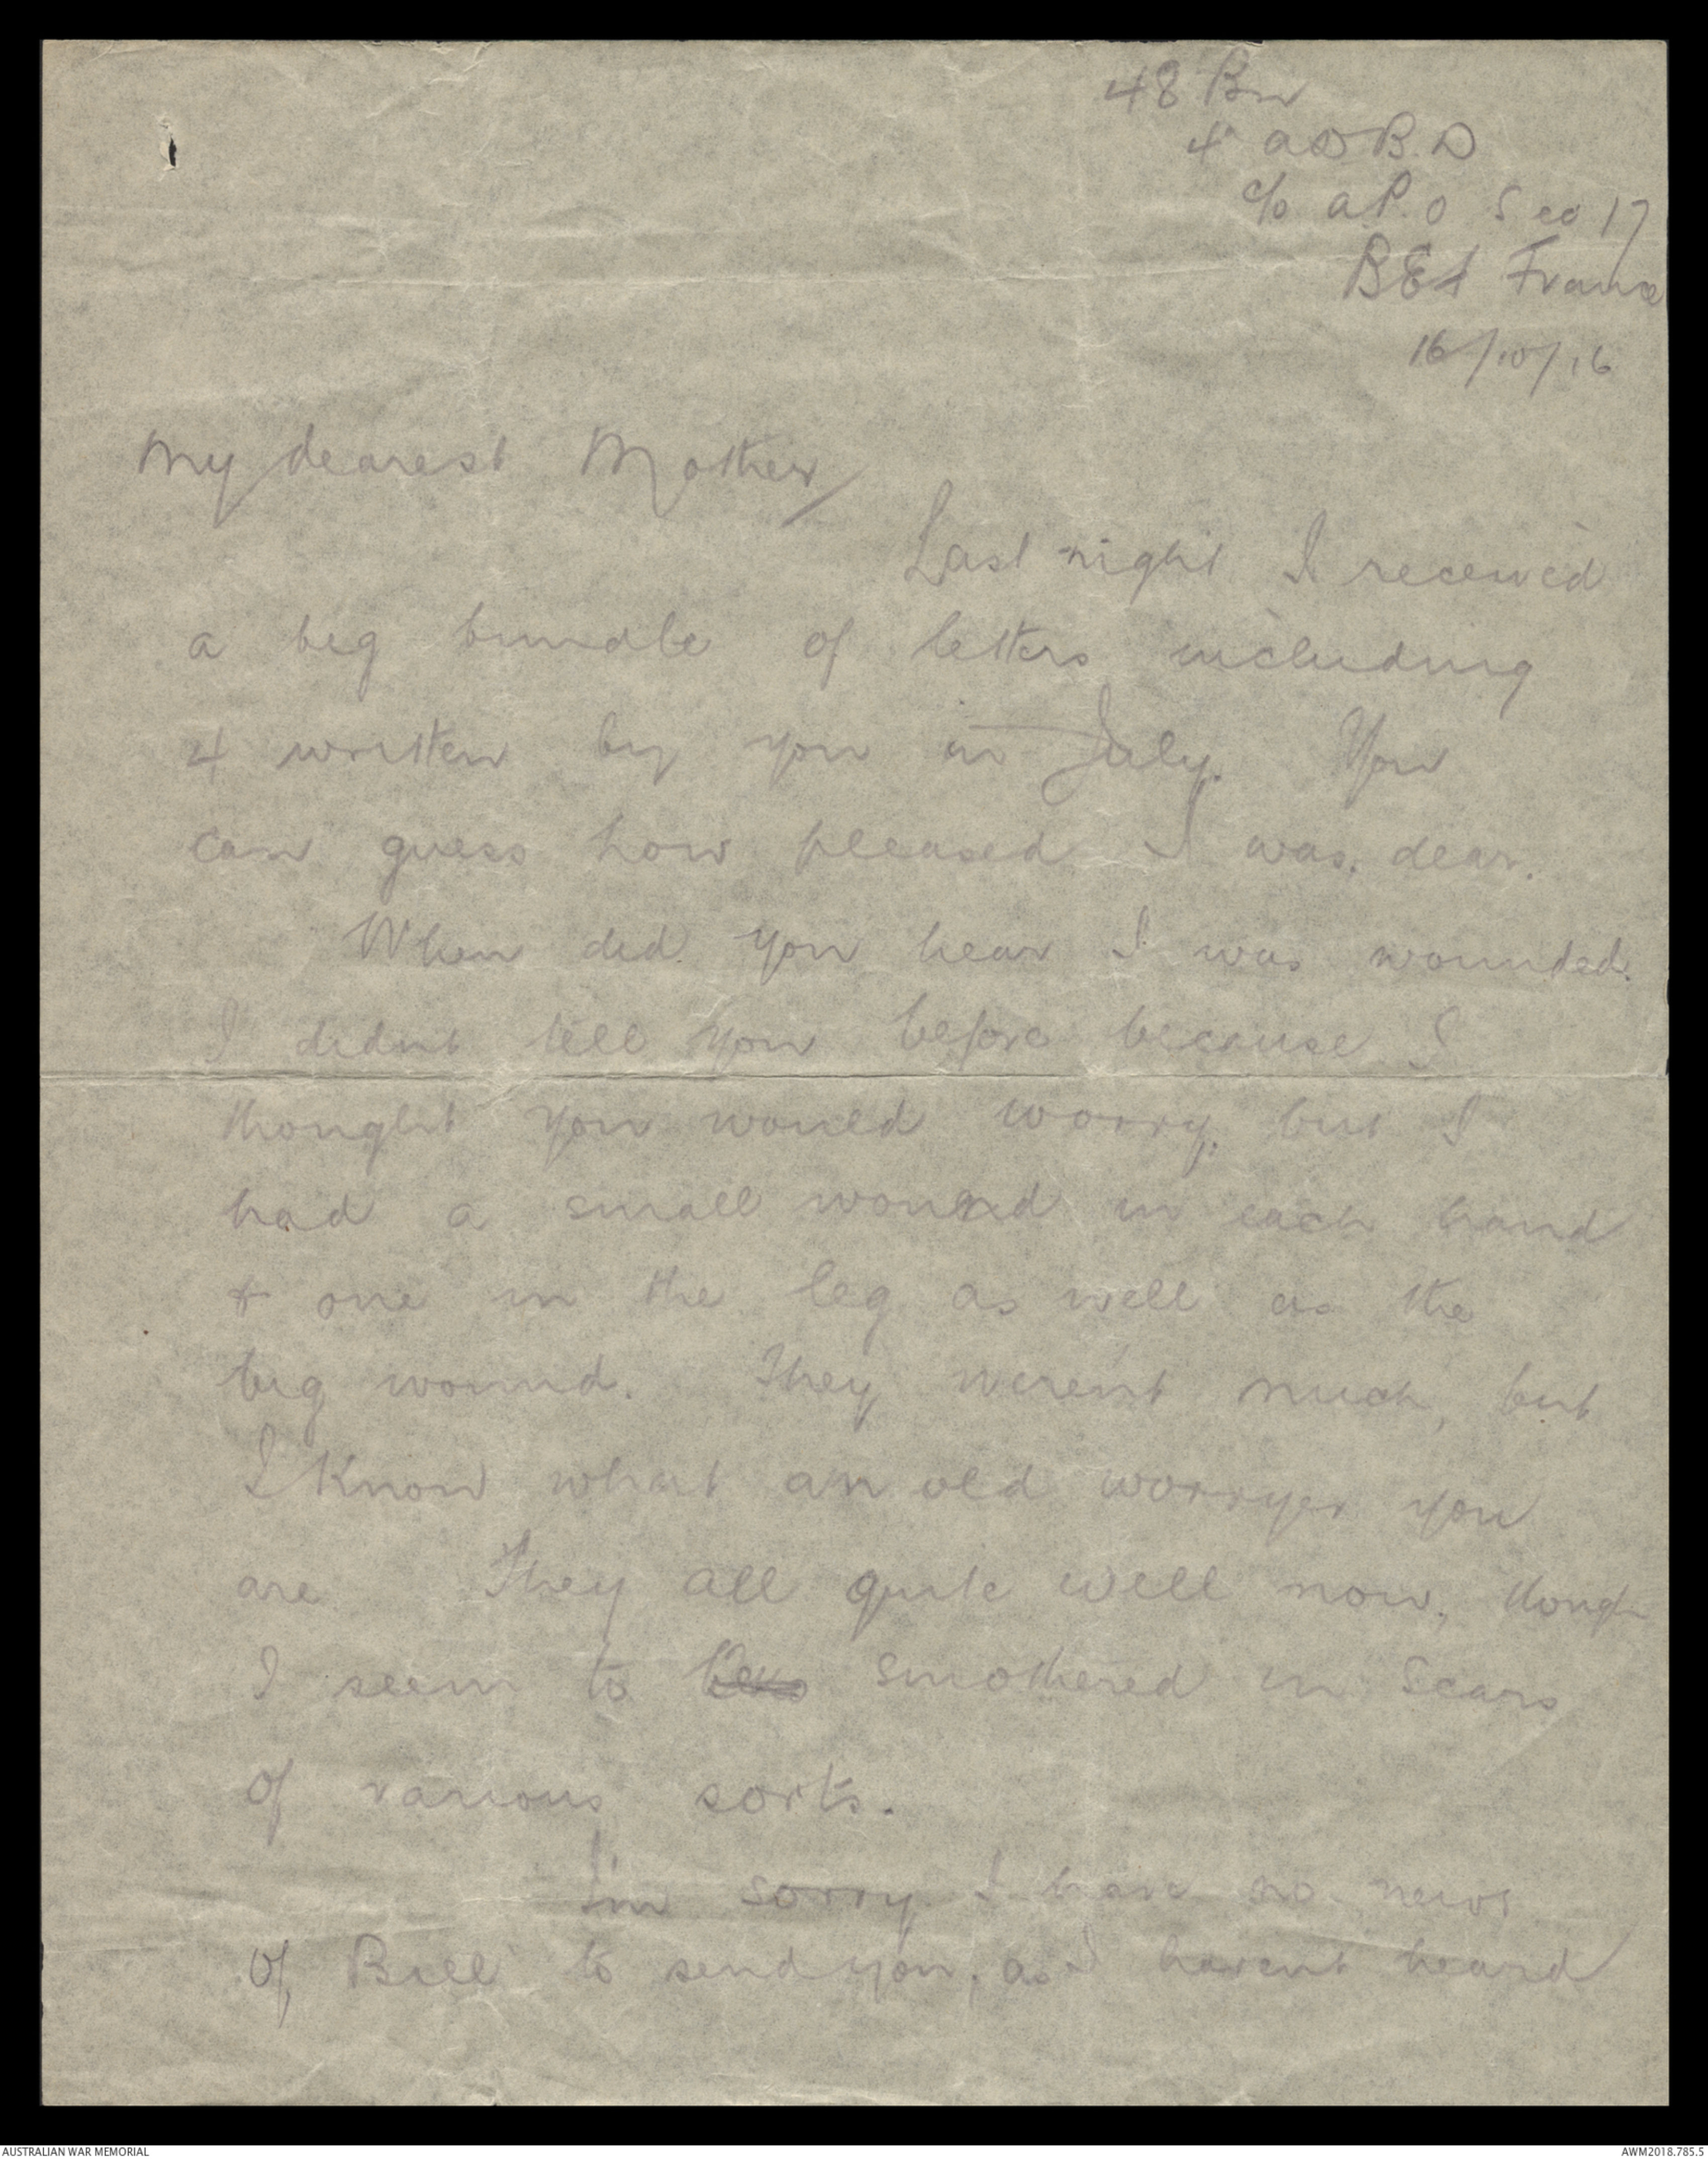 48 Bn
4 ADBD
c/o A.P.O S 17
BEF France
16/10/16
My dearest Mother/
Last night I received
a big bundle of letters including
4 written by you in July. You
can guess how pleased I was, dear.
When did you hear I was wounded.
I didnt tell you before because I
thought you would worry, but I
had a small wound in each hand
& one in the leg as well as the
big wound. They weren't much, but
I know what an old worryer you
are They all quite well now, though
I seem to smothered in scars
of various sorts.
I'm sorry I have no news
of Bill to send you, as I havent heard
AUSTRALIAN WAR MEMORIAL
AWM2018.785.5